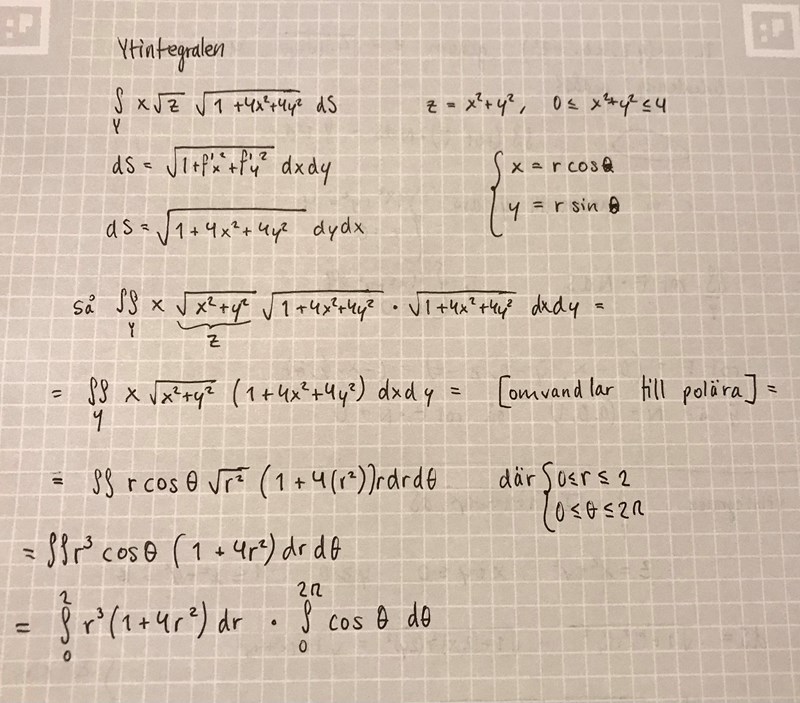 Ytintegralen
∫_Y x√z √(1+4x²+4y²) dS z = x²+y², 0 ≤ x²+y² ≤ 4
dS = √(1+f'x²+f'y²) dxdy { x = r cosθ
dS = √(1+4x²+4y²) dydx { y = r sin θ
så ∬_Y x √(x²+y²) √(1+4x²+4y²) · √(1+4x²+4y²) dxdy =
z
= ∬_Y x √(x²+y²) (1+4x²+4y²) dxdy = [omvandlar till polära] =
= ∬ r cos θ √(r²) (1+4(r²))rdrdθ där { 0≤r≤2
{ 0≤θ≤2π
= ∬r³ cosθ (1+4r²) dr dθ
= ∫₀² r³(1+4r²) dr · ∫₀^2π cos θ dθ